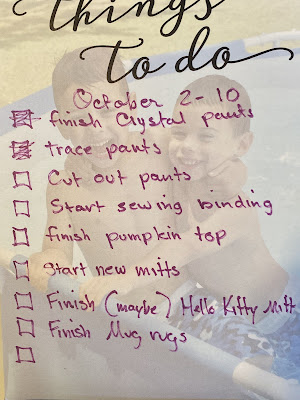 things
to do
October 2-10
finish Crystal pants
trace pants
Cut out pants
Start sewing binding
finish pumpkin top
Start new mitts
Finish (maybe) Hello Kitty Mitt
Finish Mug rugs